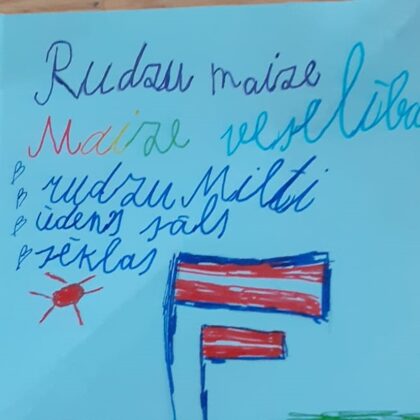 Rudzu maize
Maize veselība
rudzu Milti
ūdens sāls
sēklas